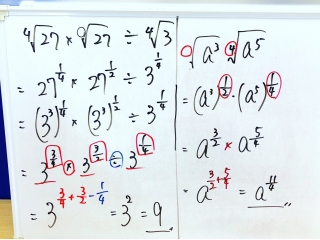 ⁴√27 × √27 ÷ ⁴√3
= 27^(1/4) × 27^(1/2) ÷ 3^(1/4)
= (3³)^(1/4) × (3³)^(1/2) ÷ 3^(1/4)
= 3^(3/4) × 3^(3/2) ÷ 3^(1/4)
= 3^(3/4 + 3/2 - 1/4) = 3² = 9
√a³ ⁴√a⁵
= (a³)^(1/2) · (a⁵)^(1/4)
= a^(3/2) × a^(5/4)
= a^(3/2 + 5/4) = a^(11/4)